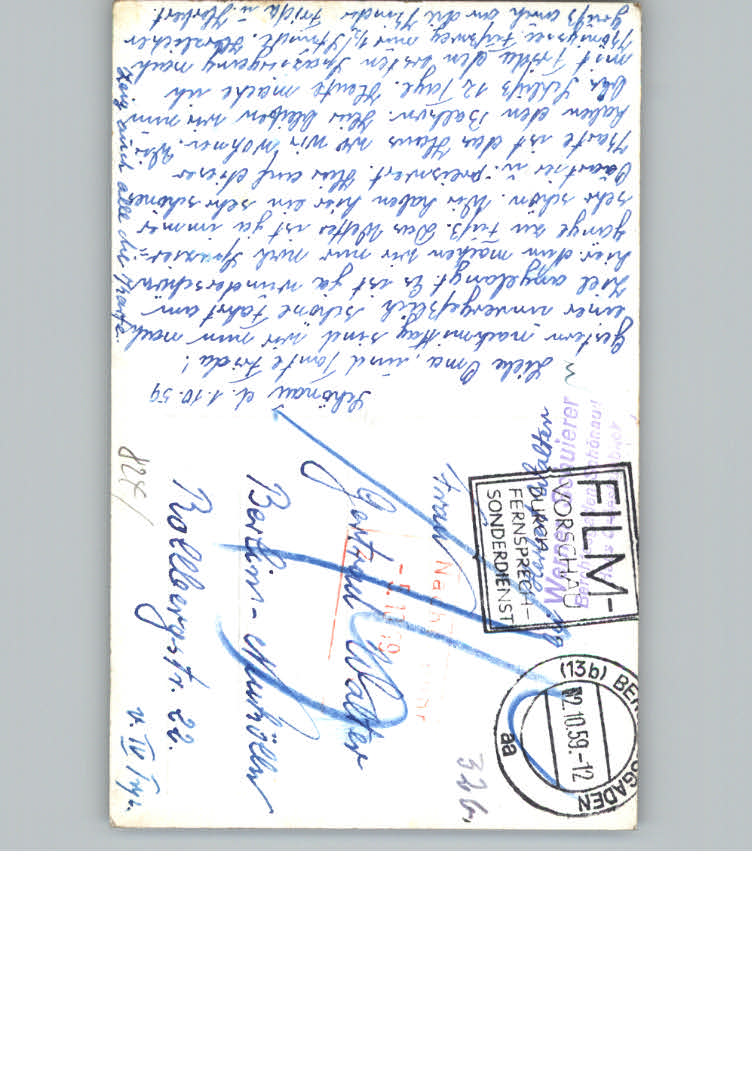 Schönau d. 1.10.59
Liebe Oma, und Tante Frida!
Gestern nachmittag sind wir nun nach
einer unvergeßlich schöne Fahrt am
Ziel angelangt Es ist ja wunderschön
hier denn machen wir nur noch Spazier-
gänge zu Fuß. Das Wetter ist ja immer
sehr schön Wir haben hier ein sehr schönes
Quartier u. preiswert. Hier auf dieser
Karte ist das Haus wo wir wohnen. Wir
haben den Balkon. Hier bleiben wir nun
bis Schluß 12 Tage. Heute mache ich
mit Frida den ersten Spaziergang nach
Königssee Fußweg nur 1/2 Stunde. Herzlicher
Gruß auch an die Kinder Frida u. Herbert
Zeig auch alle die Karte.
(13b) BERCHTESGADEN
2.10.59.-12
aa
FILM-
VORSCHAU
DURCH
FERNSPRECH-
SONDERDIENST
Werner
Frau
Walter
Berlin-Neukölln
Rollbergstr. 22.
v. IV Trp.
32b.